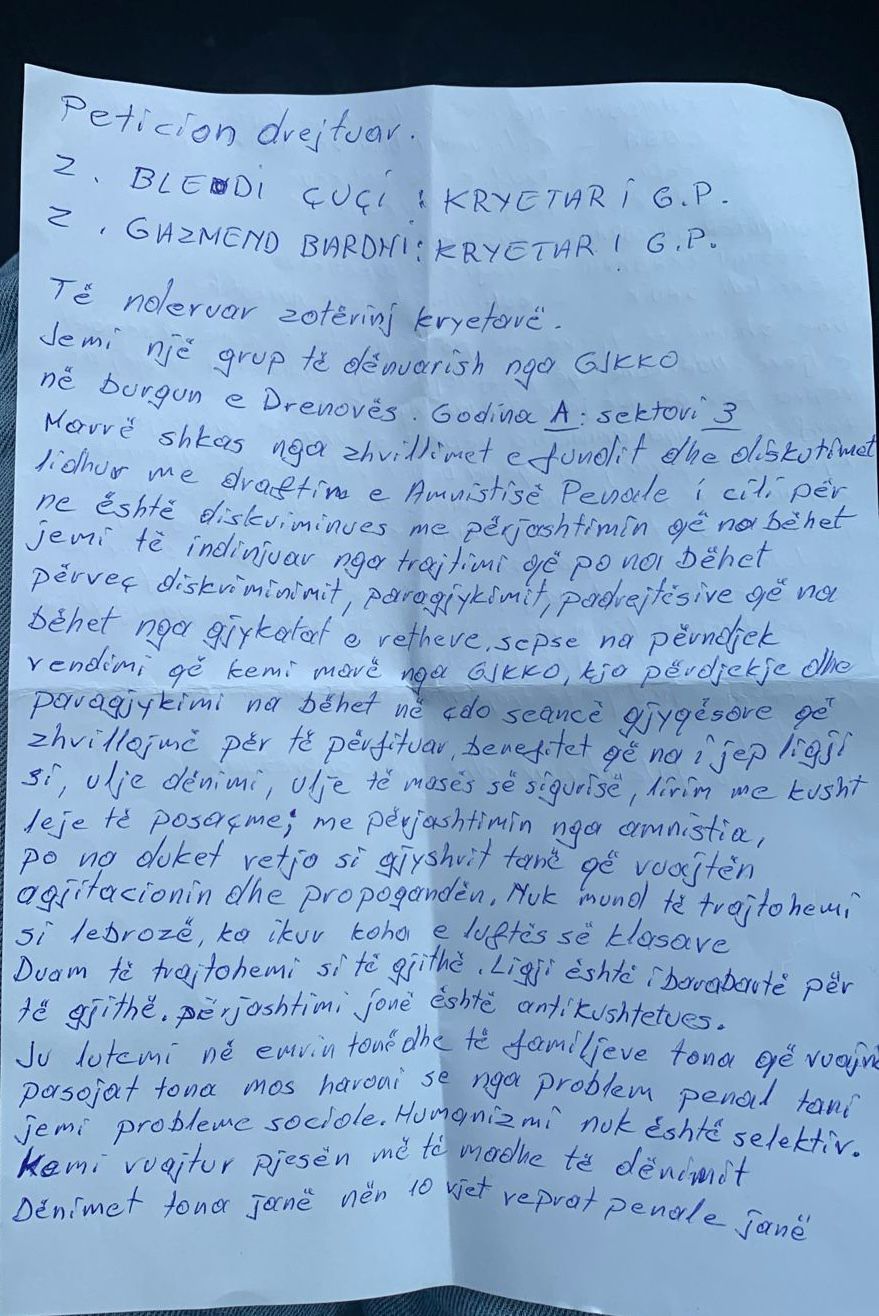 Peticion drejtuar.
Z. BLENDI ÇUÇI: KRYETAR I G.P.
Z. GAZMEND BARDHI: KRYETAR I G.P.
Të nderuar zotërinj kryetarë.
Jemi një grup të dënuarish nga GJKKO
në burgun e Drenovës. Godina A: sektori 3
Marrë shkas nga zhvillimet e fundit dhe diskutimet
lidhur me draftin e Amnistisë Penale i cili për
ne është diskriminues me përjashtimin që na bëhet
jemi të indinjuar nga trajtimi që po na bëhet
përveç diskriminimit, paragjykimit, padrejtësive që na
bëhet nga gjykatat e rretheve, sepse na përndjek
vendimi që kemi marë nga GJKKO, kjo përdjekje dhe
paragjykimi na bëhet në çdo seancë gjyqësore që
zhvillojmë për të përfituar, benefitet që na i jep ligji
si, ulje dënimi, ulje të masës së sigurisë, lirim me kusht
leje të posaçme; me përjashtimin nga amnistia,
po na duket vetja si gjyshrit tanë që vuajtën
agjitacionin dhe propogandën. Nuk mund të trajtohemi
si lebrozë, ka ikur koha e luftës së klasave
Duam të trajtohemi si të gjithë. Ligji është i barabartë për
të gjithë. përjashtimi jonë është antikushtetues.
Ju lutemi në emrin tonë dhe të familjeve tona që vuajnë
pasojat tona mos haroni se nga problem penal tani
jemi probleme sociole. Humanizmi nuk është selektiv.
Kemi vuajtur pjesën më të madhe të dënimit
Dënimet tona janë nën 10 vjet veprat penale janë